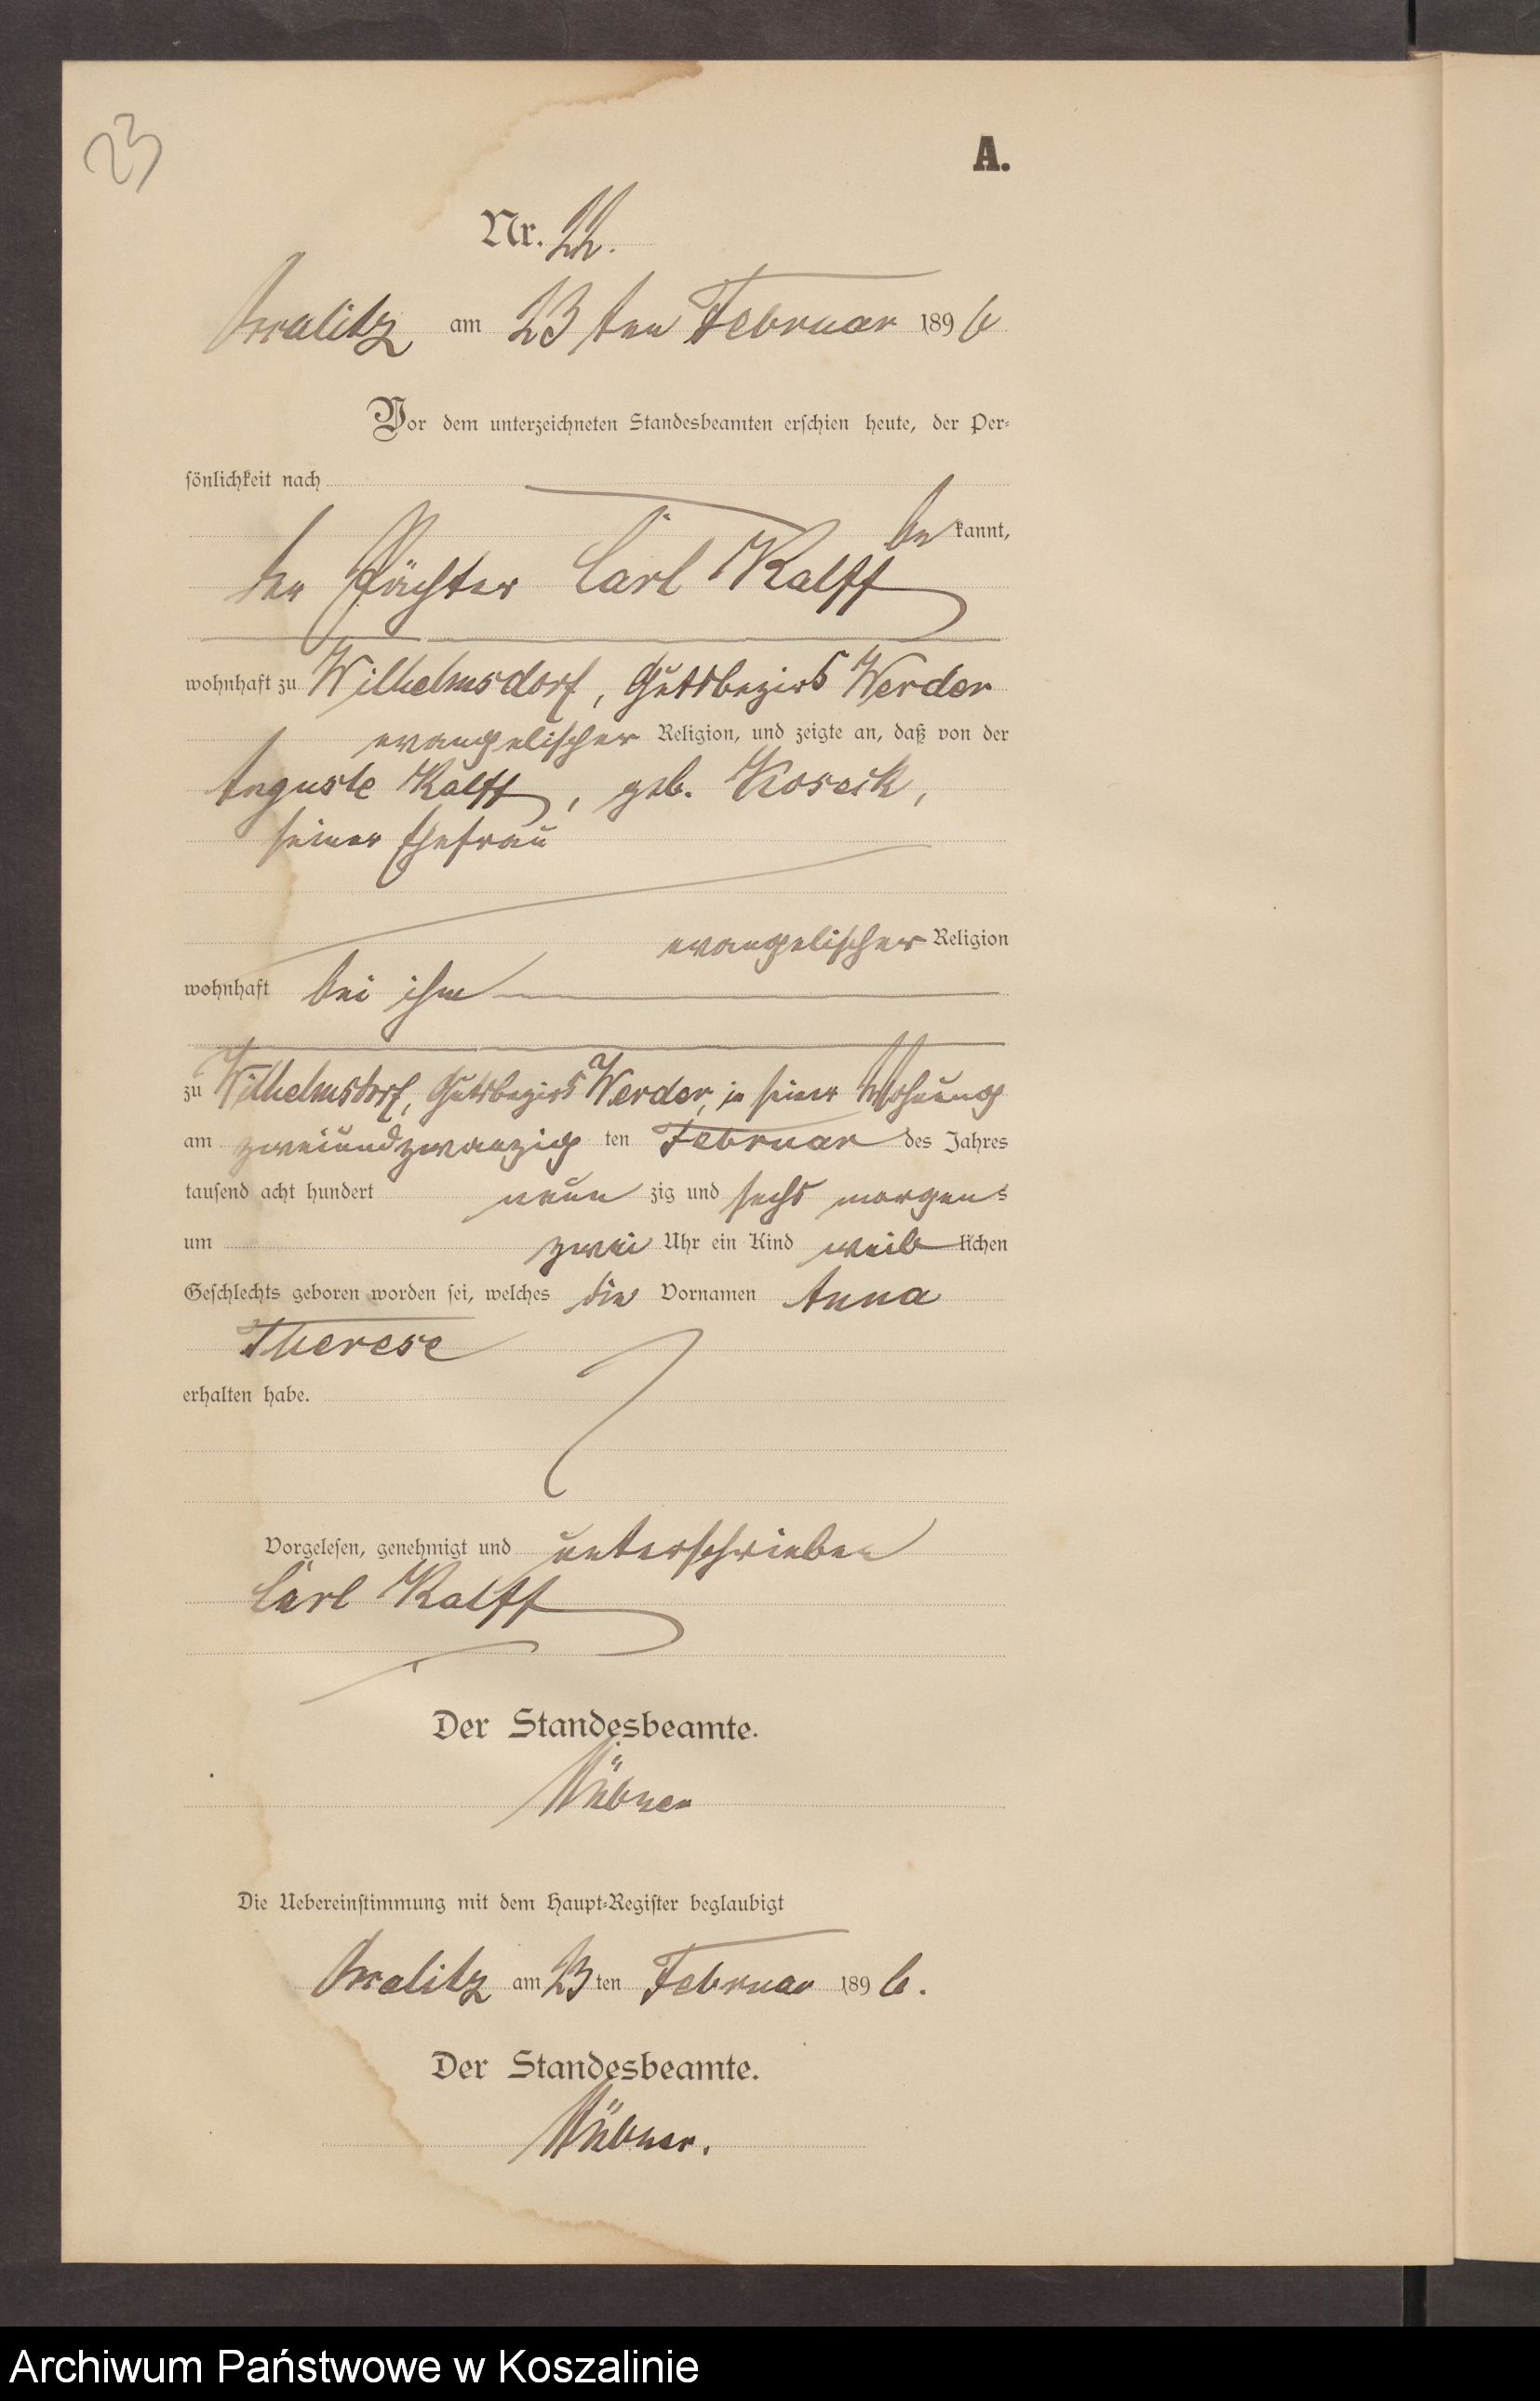 23
A.
Nr. 22.
am 23ten Februar 1896
Vor dem unterzeichneten Standesbeamten erschien heute, der Per-
sönlichkeit nach
be kannt,
der Pächter Carl Kalff
wohnhaft zu Wilhelmsdorf, Gutsbezirk Werder
evangelischer Religion, und zeigte an, daß von der
Auguste Kalff, geb.
seiner Ehefrau
evangelischer Religion
wohnhaft bei ihm
zu Wilhelmsdorf, Gutsbezirk Werder, in seiner Wohnung
am zweiundzwanzig ten Februar des Jahres
tausend acht hundert neun zig und sechs morgens
um zwei Uhr ein Kind weib lichen
Geschlechts geboren worden sei, welches die Vornamen Anna
Therese
erhalten habe.
Vorgelesen, genehmigt und unterschrieben
Carl Kalff
Der Standesbeamte.
Die Uebereinstimmung mit dem Haupt-Register beglaubigt
am 23 ten Februar 1896.
Der Standesbeamte.
Archiwum Państwowe w Koszalinie